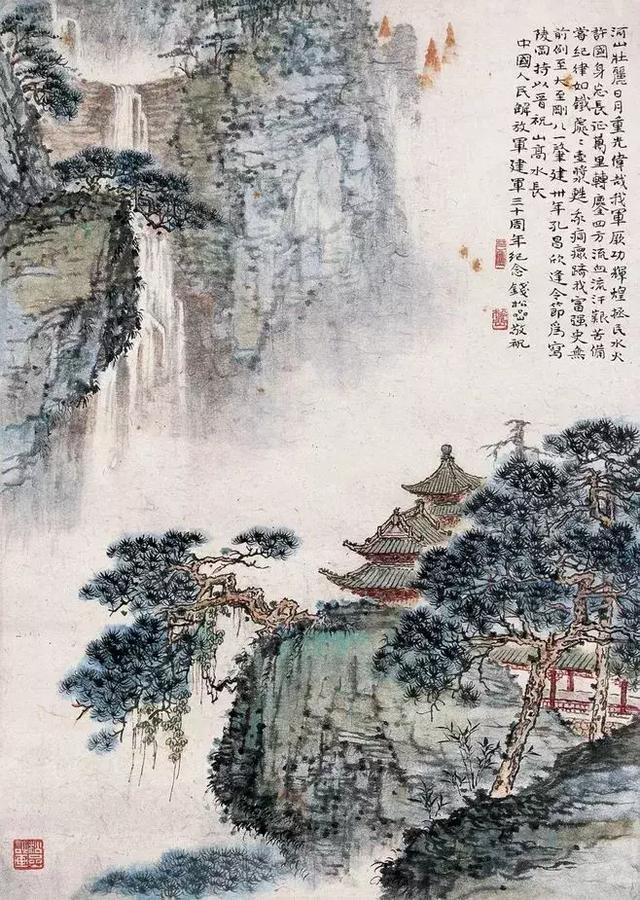 河山壯麗日月重光偉哉我軍厥功輝煌拯民水火
許國身忘長征萬里轉鏖四方流血流汗艱苦備
嘗紀律如鐵處〻壺漿甦痌瘝躋我富强史無
前例至大至剛八一肇建卅年孔昌欣逢令節爲寫
陵岡持以晉祝山高水長
中國人民解放軍建軍三十周年紀念錢松喦敬祝